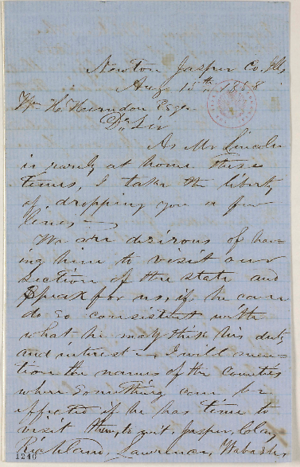 Newton Jasper Co. Ills
Aug 15th 1858
Wm H Hearndon Esqr
Dr Sir
As Mr Lincoln
is rarely at home these
times, I take the liberty
of dropping you a few
lines—
We are desirous of hav
ing him to visit our
section of the state and
speak for us, if he can
do so consistent with
what he may think his duty
and interest— I will men
tion the names of the counties
where something can be
effected if he has time to
visit them, to wit, Jasper, Clay,
Richland, Lawrence, Wabash,
1240